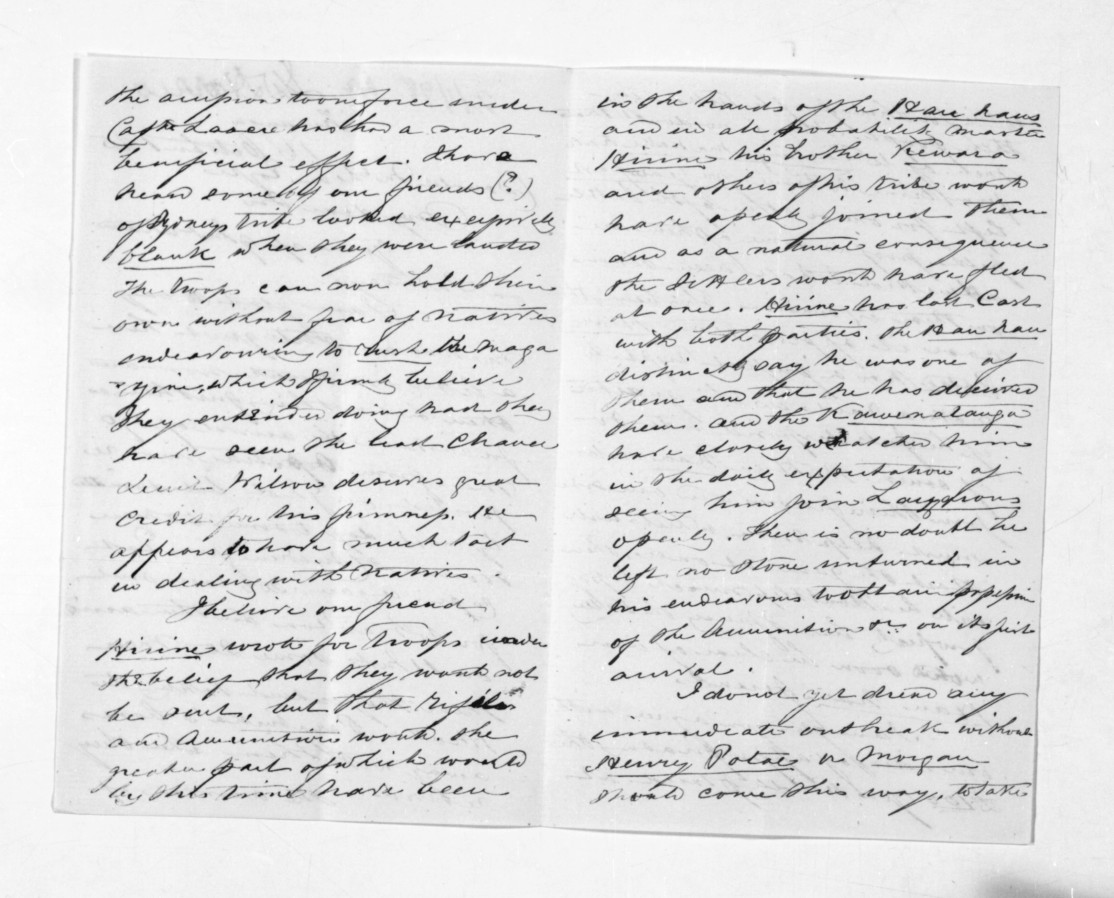 the
Capt has had a most
beneficial effect. I have
heard some of our friends (?)
of tribe looked excessively
blank when they were landed
The troops can now hold their
own without fear of natives
endeavouring to rush the maga
zine, which I firmly believe
they intended doing had they
have seen the least chance
Lieut Wilson deserves great
credit for his firmness. He
appears to have much tact
in dealing with natives.
I believe our friend
Hirine wrote for Troops under
the belief that they would not
be sent, but that rifles
and Ammunition would. the
greater part of which would
by this time have been
in the hands of the Hau haus
and in all probability master
Hirine his brother Rewara
and others of his tribe would
have openly joined them
and as a natural consequence
the settlers would have fled
at once. Hirine has lost Cast
with both parties. the Hau hau
distinctly say he was one of
them and that he has deceived
them. and the
have closely watched him
in the daily expectation of
seeing him join
openly. There is no doubt he
left no stone unturned in
his endeavours to obtain possession
of the Ammunition &c. on its first
arrival.
I do not yet dread any
immediate outbreak without
Henry Potae or Morgan
should come this way, to take